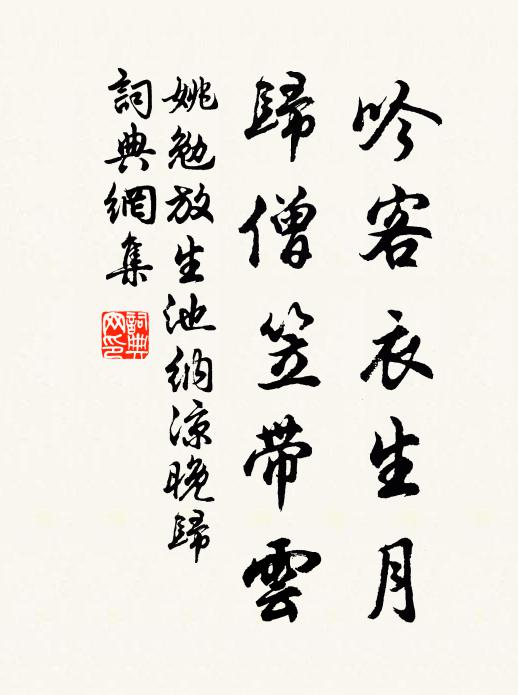 吟客衣生月
歸僧笠带雲
姚勉放生池納凉晚歸
詞典網集
詞典网印